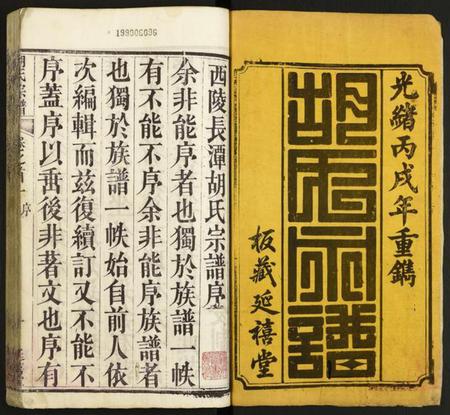 光緒丙戌年重鐫
胡氏宗譜
板藏延禧堂
199006096
西陵長潭胡氏宗譜序
余非能序者也獨於族譜一帙
有不能不序余非能序族譜者
也獨於族譜一帙始自前人依
次編輯而茲復續訂又不能不
序蓋序以垂後非著文也序有
胡氏宗譜 卷之首 序